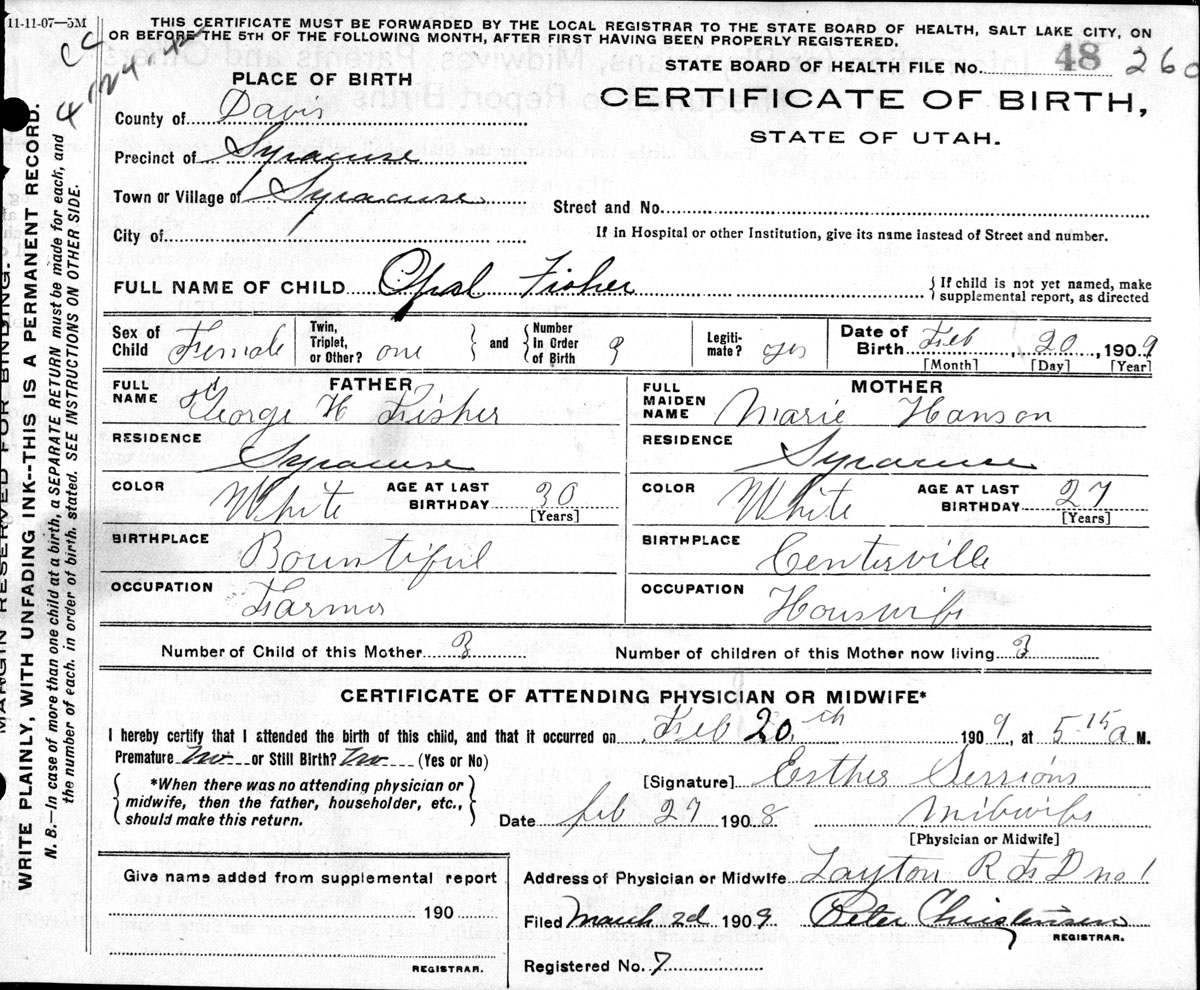 11-11-07—5M
THIS CERTIFICATE MUST BE FORWARDED BY THE LOCAL REGISTRAR TO THE STATE BOARD OF HEALTH, SALT LAKE CITY, ON
OR BEFORE THE 5TH OF THE FOLLOWING MONTH, AFTER FIRST HAVING BEEN PROPERLY REGISTERED.
STATE BOARD OF HEALTH FILE No. 48 260
CERTIFICATE OF BIRTH,
STATE OF UTAH.
PLACE OF BIRTH
County of Davis
Precinct of Syracuse
Town or Village of Syracuse
City of
Street and No.
If in Hospital or other Institution, give its name instead of Street and number.
FULL NAME OF CHILD Opal Fisher
If child is not yet named, make
supplemental report, as directed
Sex of Child Female Twin, Triplet, or Other? one and Number In Order of Birth Legiti- mate? yes Date of Birth Feb 20, 1909
[Month] [Day] [Year]
FATHER
FULL NAME George H Fisher
RESIDENCE Syracuse
COLOR White AGE AT LAST BIRTHDAY 30 [Years]
BIRTHPLACE Bountiful
OCCUPATION Farmer
MOTHER
FULL MAIDEN NAME Marie Hanson
RESIDENCE Syracuse
COLOR White AGE AT LAST BIRTHDAY 27 [Years]
BIRTHPLACE Centerville
OCCUPATION Houswife
Number of Child of this Mother 3 Number of children of this Mother now living 3
CERTIFICATE OF ATTENDING PHYSICIAN OR MIDWIFE*
I hereby certify that I attended the birth of this child, and that it occurred on Feb 20th 1909, at 5-15 a M.
Premature no or Still Birth? no (Yes or No)
*When there was no attending physician or
midwife, then the father, householder, etc.,
should make this return.
[Signature] Esther Serrions
Date feb 27 1908 Midwife
[Physician or Midwife]
Give name added from supplemental report
190
REGISTRAR.
Address of Physician or Midwife Layton R F D no 1
Filed March 2d 1909 Peter Christensen
REGISTRAR.
Registered No. 7
MARGIN RESERVED FOR BINDING.
WRITE PLAINLY, WITH UNFADING INK--THIS IS A PERMANENT RECORD.
N. B.—In case of more than one child at a birth, a SEPARATE RETURN must be made for each, and
the number of each, in order of birth, stated. SEE INSTRUCTIONS ON OTHER SIDE.